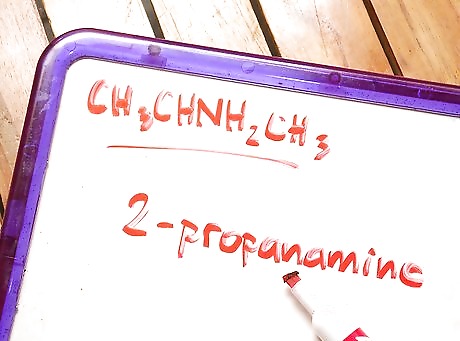 CH₃CHNH₂CH₃
2-propanamine